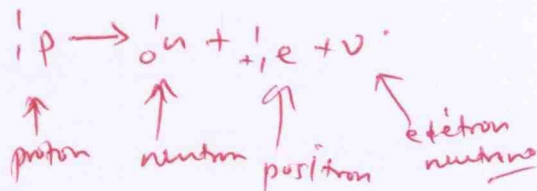 ¹₁p → ¹₀n + ¹₊₁e + ν
proton neutron positron
neutrino